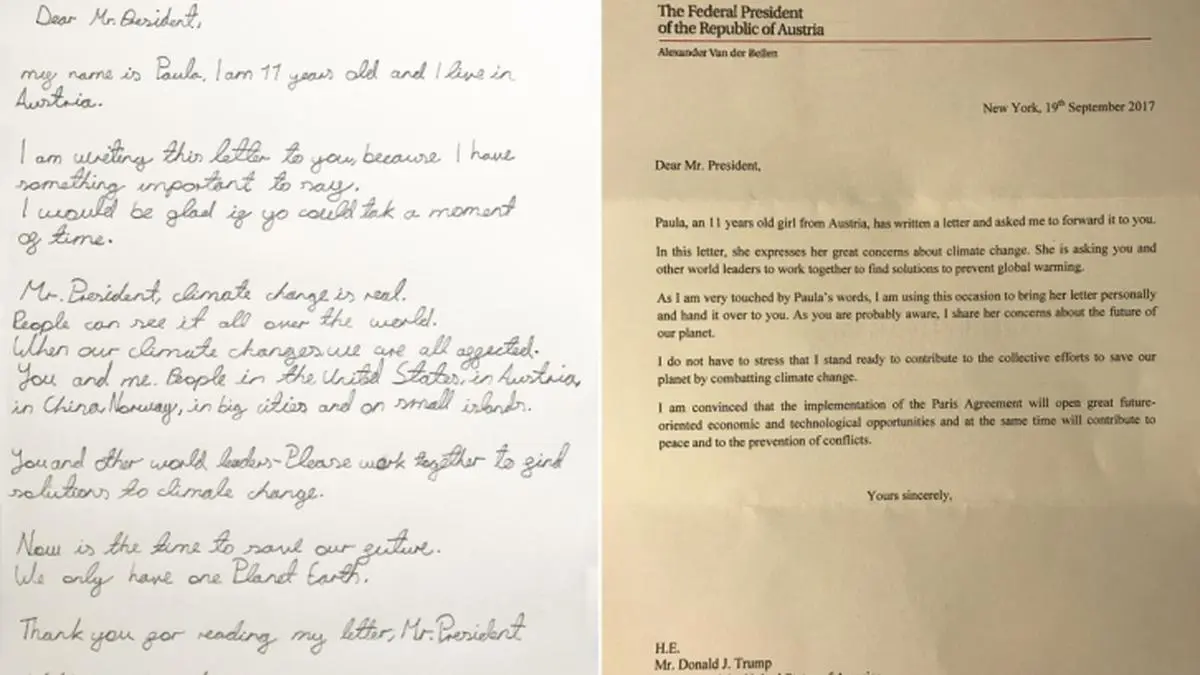 Dear Mr. President,
my name is Paula, I am 11 years old and I live in
Austria.
I am writing this letter to you, because I have
something important to say.
I would be glad if yo could tak a moment
of time.
Mr. President, climate change is real.
People can see it all over the world.
When our climate changes we are all affected.
You and me. People in the United States, in Austria,
in China, Norway, in big cities and on small islands.
You and other world leaders-Please work together to find
solutions to climate change.
Now is the time to save our future.
We only have one Planet Earth.
Thank you for reading my letter, Mr. President
The Federal President
of the Republic of Austria
Alexander Van der Bellen
New York, 19th September 2017
Dear Mr. President,
Paula, an 11 years old girl from Austria, has written a letter and asked me to forward it to you.
In this letter, she expresses her great concerns about climate change. She is asking you and
other world leaders to work together to find solutions to prevent global warming.
As I am very touched by Paula's words, I am using this occasion to bring her letter personally
and hand it over to you. As you are probably aware, I share her concerns about the future of
our planet.
I do not have to stress that I stand ready to contribute to the collective efforts to save our
planet by combatting climate change.
I am convinced that the implementation of the Paris Agreement will open great future-
oriented economic and technological opportunities and at the same time will contribute to
peace and to the prevention of conflicts.
Yours sincerely,
H.E.
Mr. Donald J. Trump